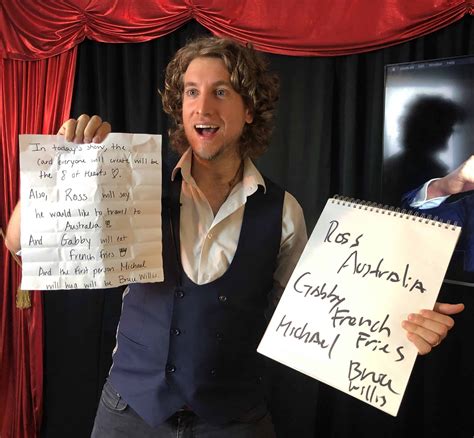 In today's show, the
card everyone will create will be
the 8 of Hearts ♡.
Also, Ross will say
he would like to travel to
Australia
And Gabby will eat
French Fries
And the first person Michael
will hug will be Bruce Willis.
Ross
Australia
Gabby
French
Fries
Michael
Bruce
Willis